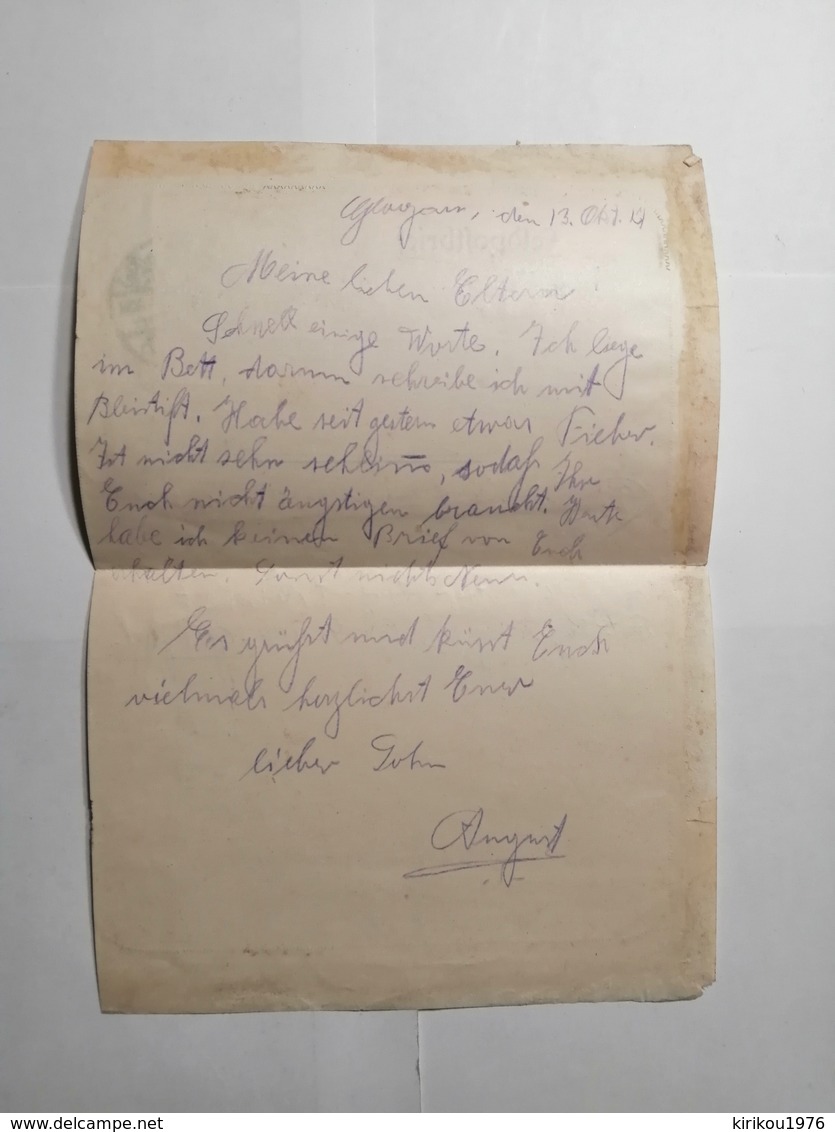 Glogau, den 13. Okt. 14
Meine lieben Eltern!
Schnell einige Worte. Ich liege
im Bett, darum schreibe ich mit
Bleistift. Habe seit gestern etwas Fieber.
Ist nicht sehn schlimm, sodaß Ihr
Euch nicht ängstigen braucht. Heute
habe ich keinen Brief von Euch
erhalten. Sonst nichts Neues.
Es grüßt und küsst Euch
vielmals herzlichst Euer
lieber Sohn
August
delcampe.net
kirikou1976